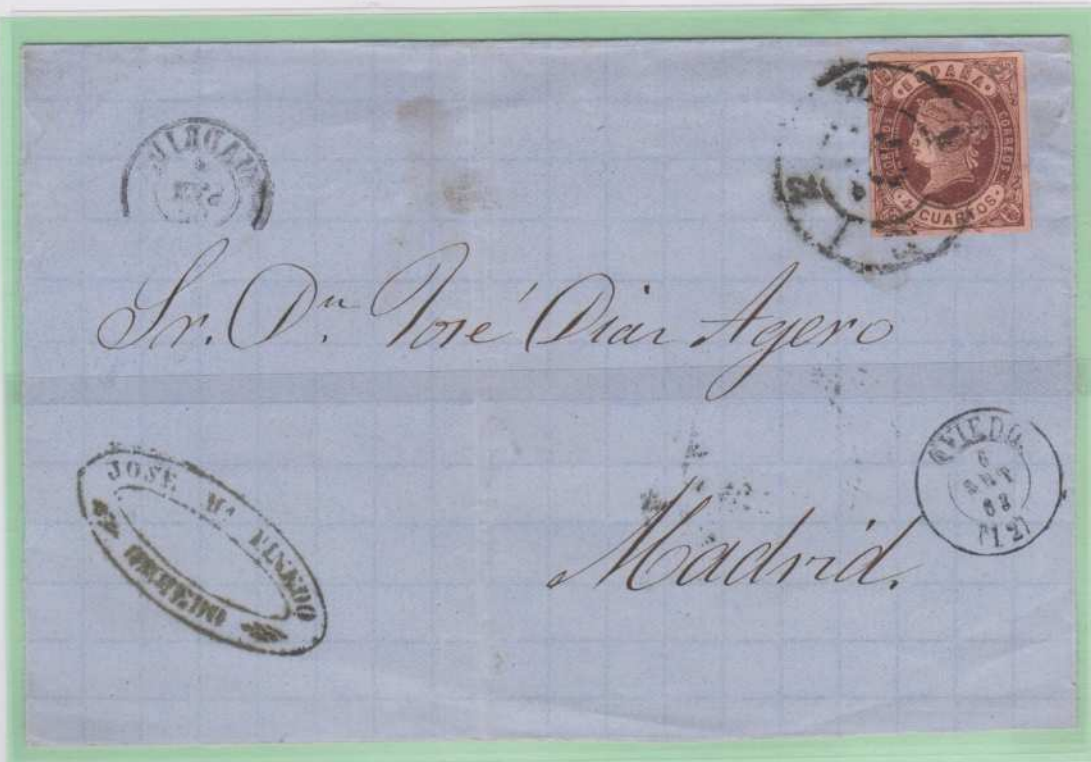 ESPAÑA
CORREOS
4 CUARTOS
Sr. Dn. José Diaz Agero
OVIEDO.
6
SET
63
(12)
JOSÉ Mª PINEDO
OVIEDO
Madrid.